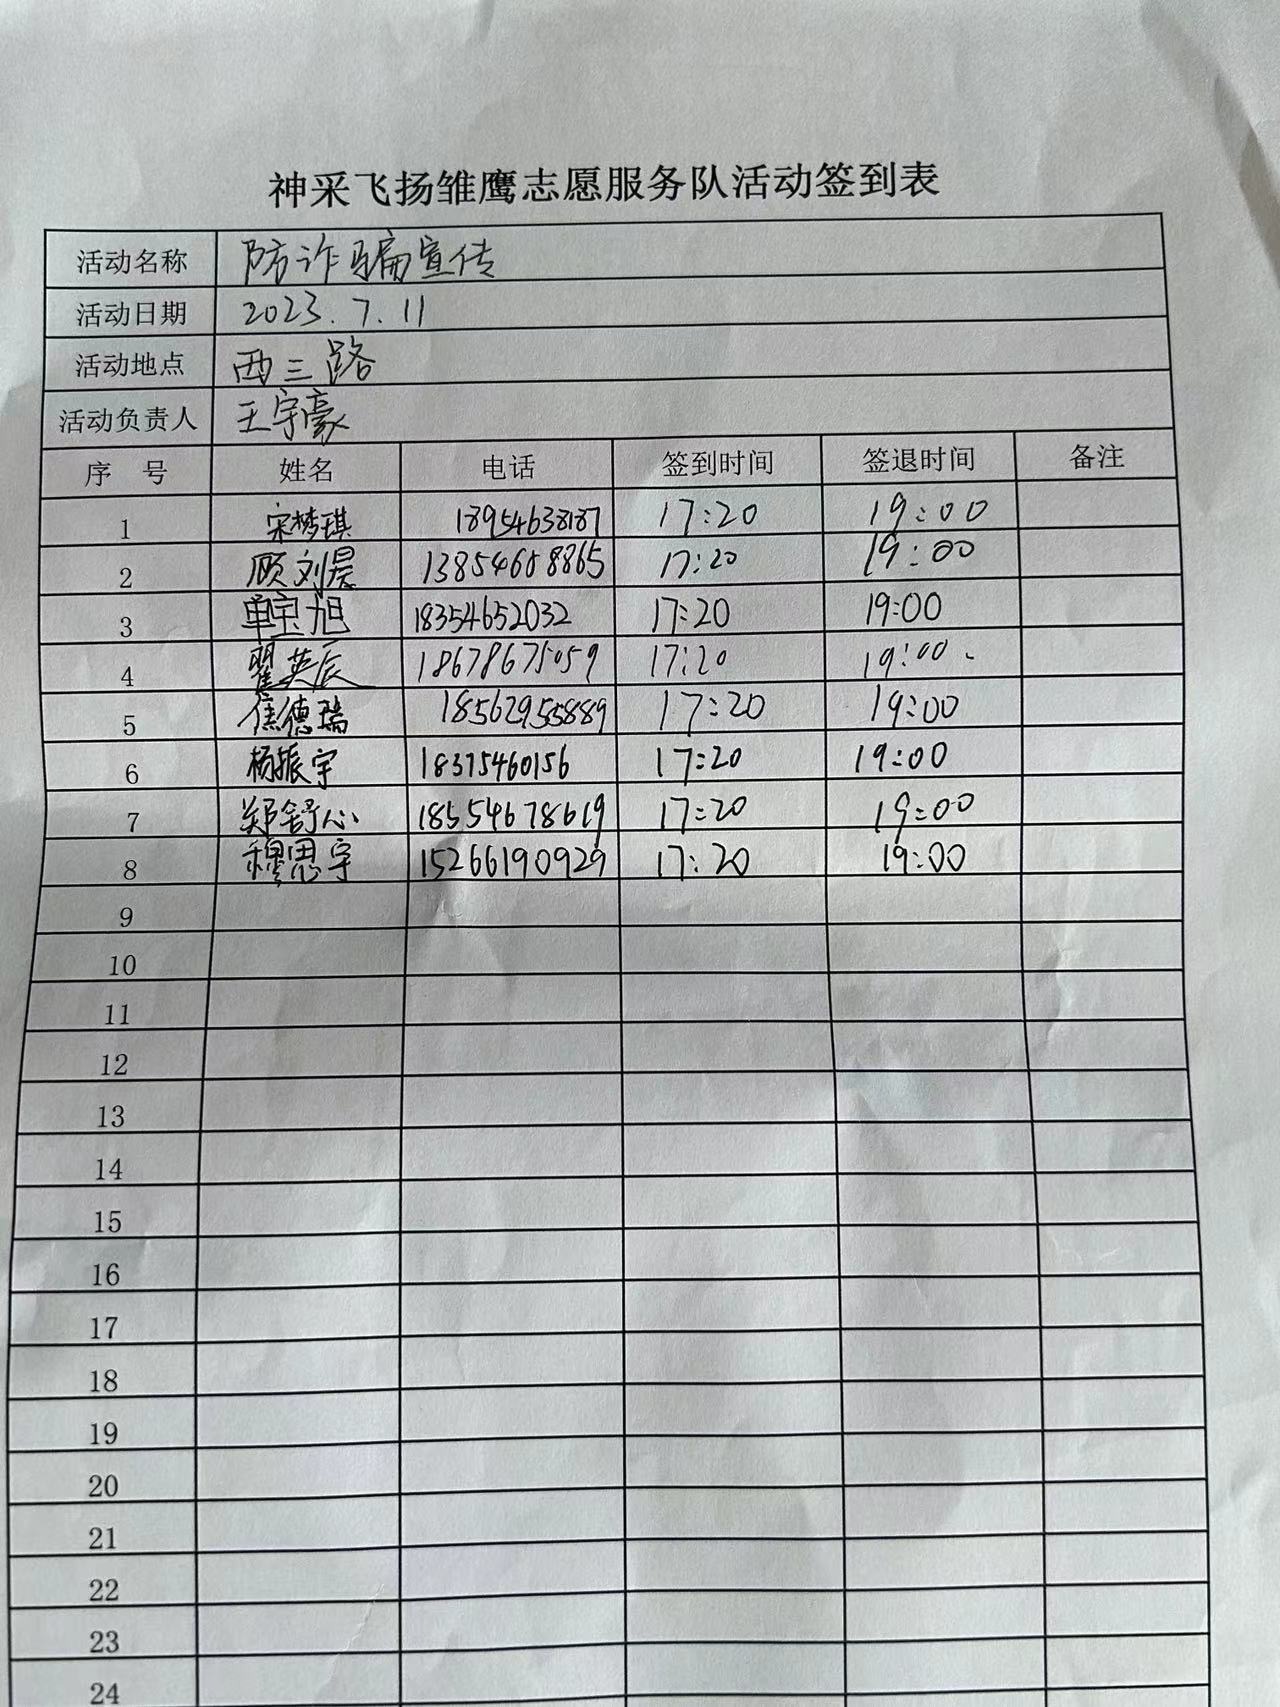 神采飞扬雏鹰志愿服务队活动签到表
活动名称 防诈骗宣传
活动日期 2023.7.11
活动地点 西三路
活动负责人 王宇豪
序 号 姓名 电话 签到时间 签退时间 备注
1 宋梦琪 18954638187 17:20 19:00
2 顾刘晨 13854658865 17:20 19:00
3 单宝旭 18354652032 17:20 19:00
4 翟英辰 18678675059 17:20 19:00.
5 焦德瑞 18562955889 17:20 19:00
6 杨振宇 18375460156 17:20 19:00
7 郑舒心 18554678619 17:20 19:00
8 穆思宇 15266190929 17:20 19:00
9
10
11
12
13
14
15
16
17
18
19
20
21
22
23
24